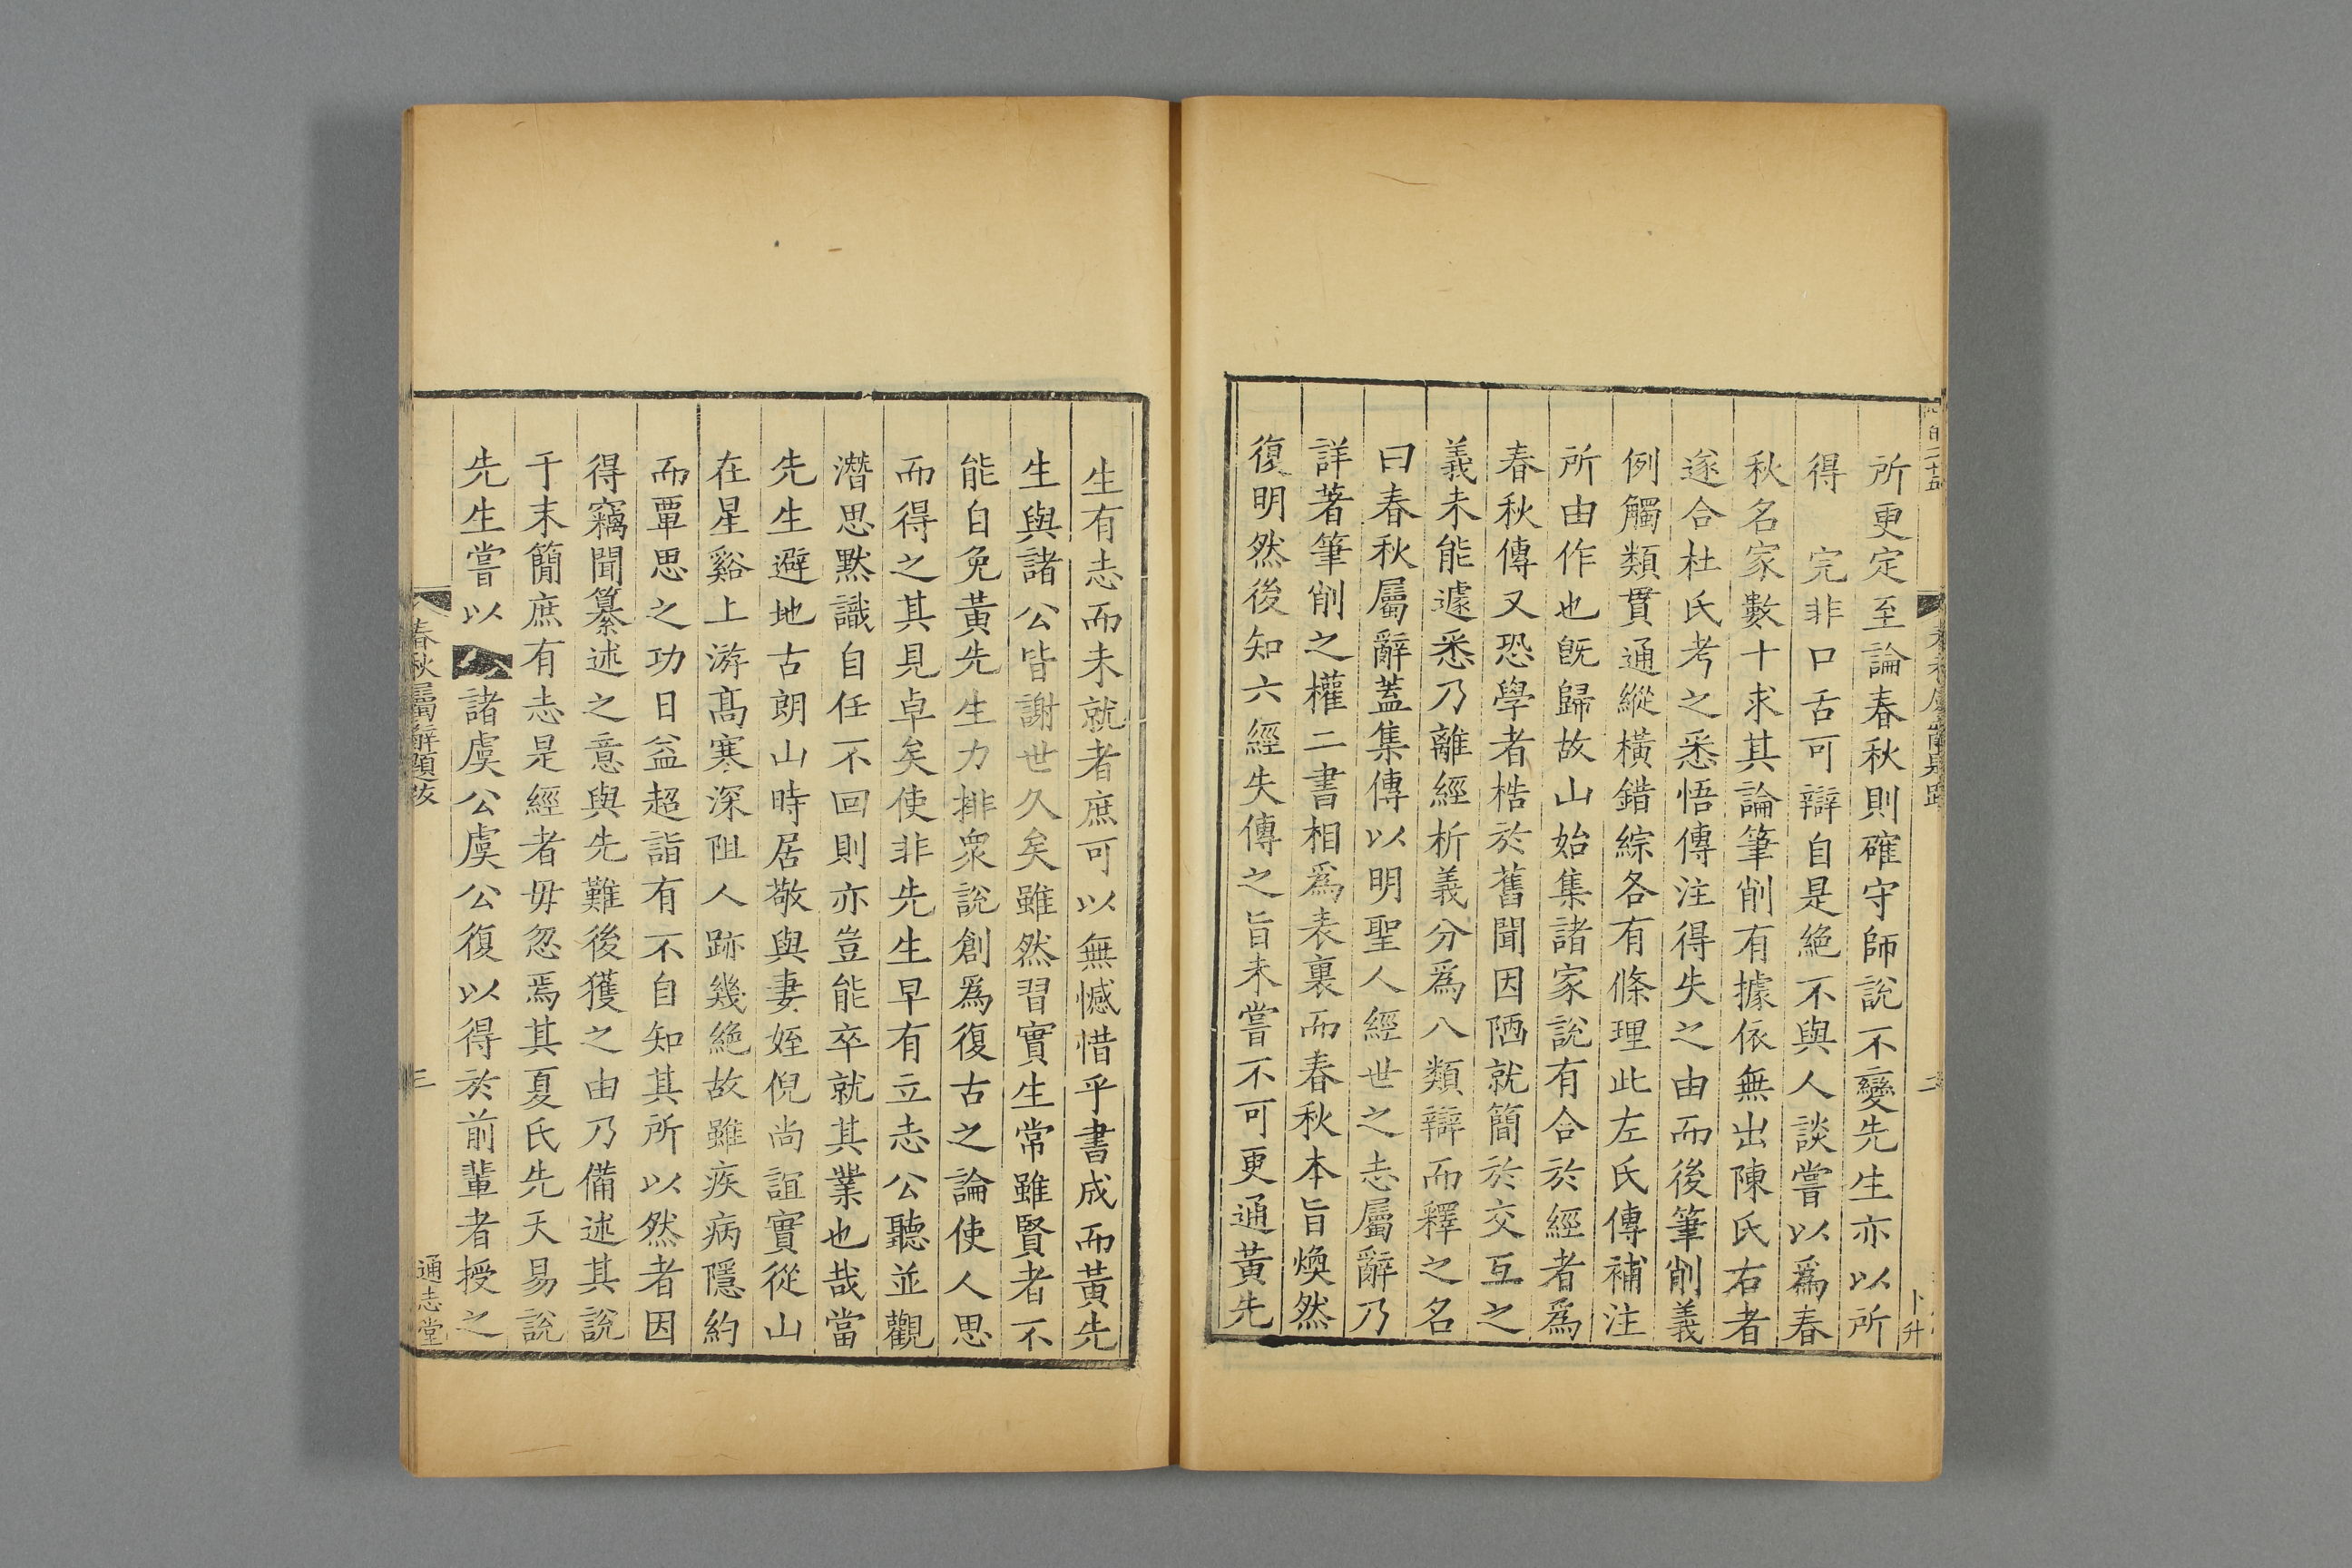 所更定至論春秋則確守師說不變先生亦以所
得　完非口舌可辯自是絕不與人談嘗以爲春
秋名家數十求其論筆削有據依無出陳氏右者
遂合杜氏考之悉悟傳注得失之由而後筆削義
例觸類貫通縱橫錯綜各有條理此左氏傳補注
所由作也旣歸故山始集諸家說有合於經者爲
春秋傳又恐學者梏於舊聞因陋就簡於交互之
義未能遽悉乃離經析義分爲八類辯而釋之名
曰春秋屬辭蓋集傳以明聖人經世之志屬辭乃
詳著筆削之權二書相爲表裏而春秋本旨煥然
復明然後知六經失傳之旨未嘗不可更通黃先
生有志而未就者庶可以無憾惜乎書成而黃先
生與諸公皆謝世久矣雖然習實生常雖賢者不
能自免黃先生力排衆說創爲復古之論使人思
而得之其見卓矣使非先生早有立志公聽並觀
潛思默識自任不回則亦豈能卒就其業也哉當
先生避地古朗山時居敬與妻姪倪尚誼實從山
在星谿上游高寒深阻人跡幾絕故雖疾病隱約
而覃思之功日益超詣有不自知其所以然者因
得竊聞纂述之意與先難後獲之由乃備述其說
于末簡庶有志是經者毋忽焉其夏氏先天易說
先生嘗以諸虞公虞公復以得於前輩者授之
春秋屬辭題跋
三
通志堂